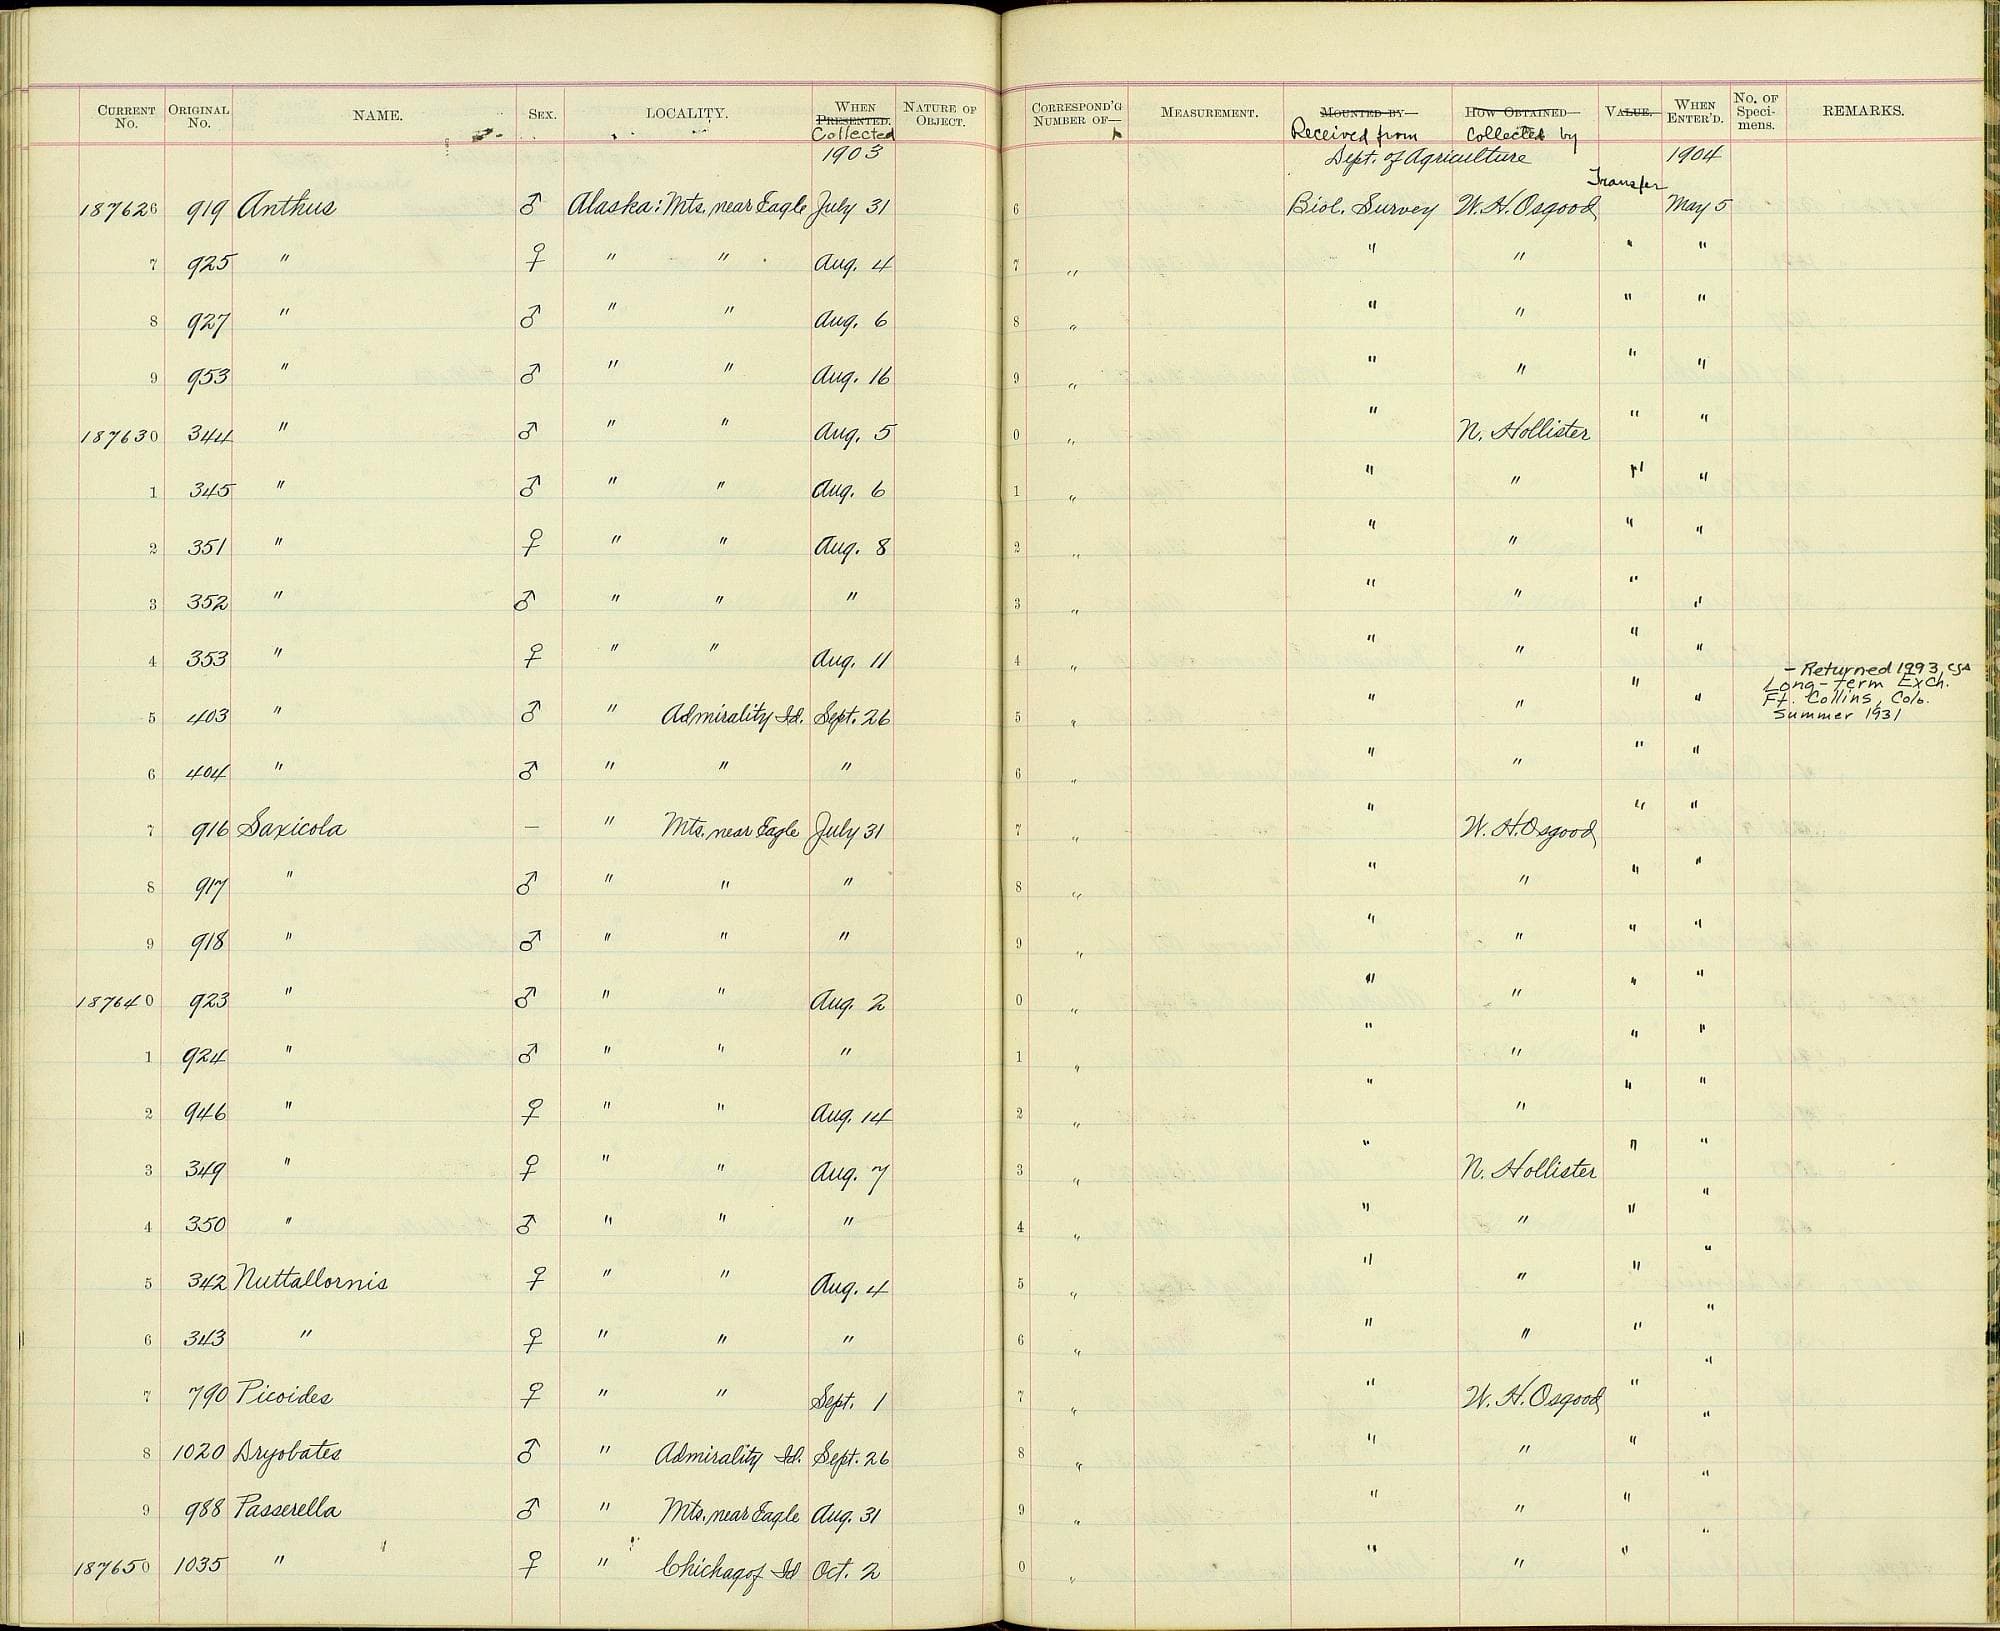 CURRENT No. ORIGINAL No. NAME. SEX. LOCALITY. WHEN PRESENTED. Collected NATURE OF OBJECT. CORRESPOND'G NUMBER OF— MEASUREMENT. MOUNTED BY— Received from HOW OBTAINED— Collected by VALUE. WHEN ENTER'D. No. OF Speci- mens. REMARKS.
1903 Dept. of Agriculture 1904
187626 919 Anthus ♂ Alaska: Mts. near Eagle July 31 6 Biol. Survey W. H. Osgood Transfer May 5
7 925 " ♀ " " Aug. 4 7 " " " " "
8 927 " ♂ " " Aug. 6 8 " " " " "
9 953 " ♂ " " Aug. 16 9 " " " " "
187630 344 " ♂ " " Aug. 5 0 " " N. Hollister " "
1 345 " ♂ " " Aug. 6 1 " " " " "
2 351 " ♀ " " Aug. 8 2 " " " " "
3 352 " ♂ " " " 3 " " " " "
4 353 " ♀ " " Aug. 11 4 " " " " "
5 403 " ♂ " Admirality Id. Sept. 26 5 " " " " " - Returned 1993, CSA
Long-term Exch.
Ft. Collins, Colo.
Summer 1931
6 404 " ♂ " " " 6 " " " " "
7 916 Saxicola — " Mts. near Eagle July 31 7 " " W. H. Osgood " "
8 917 " ♂ " " " 8 " " " " "
9 918 " ♂ " " " 9 " " " " "
187640 923 " ♂ " " Aug. 2 0 " " " " "
1 924 " ♂ " " " 1 " " " " "
2 946 " ♀ " " Aug. 14 2 " " " " "
3 349 " ♀ " " Aug. 7 3 " " N. Hollister " "
4 350 " ♂ " " " 4 " " " " "
5 342 Nuttallornis ♀ " " Aug. 4 5 " " " " "
6 343 " ♀ " " " 6 " " " " "
7 790 Picoides ♀ " " Sept. 1 7 " " W. H. Osgood " "
8 1020 Dryobates ♂ " Admirality Id. Sept. 26 8 " " " " "
9 988 Passerella ♂ " Mts. near Eagle Aug. 31 9 " " " " "
187650 1035 " ♀ " Chichagof Id Oct. 2 0 " " " " "